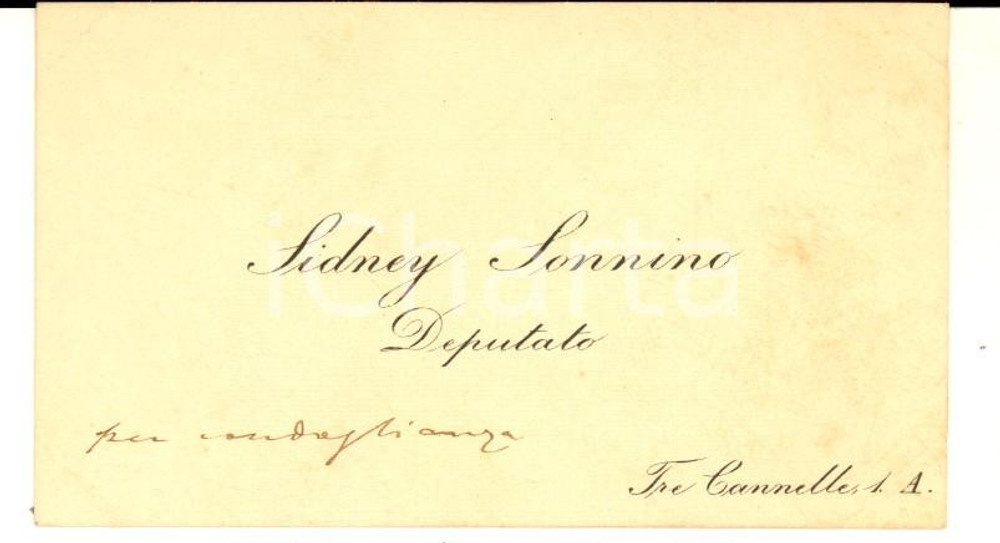 iCharta
Sidney Sonnino
Deputato
per condoglianza
Tre Cannelle, 1. A.